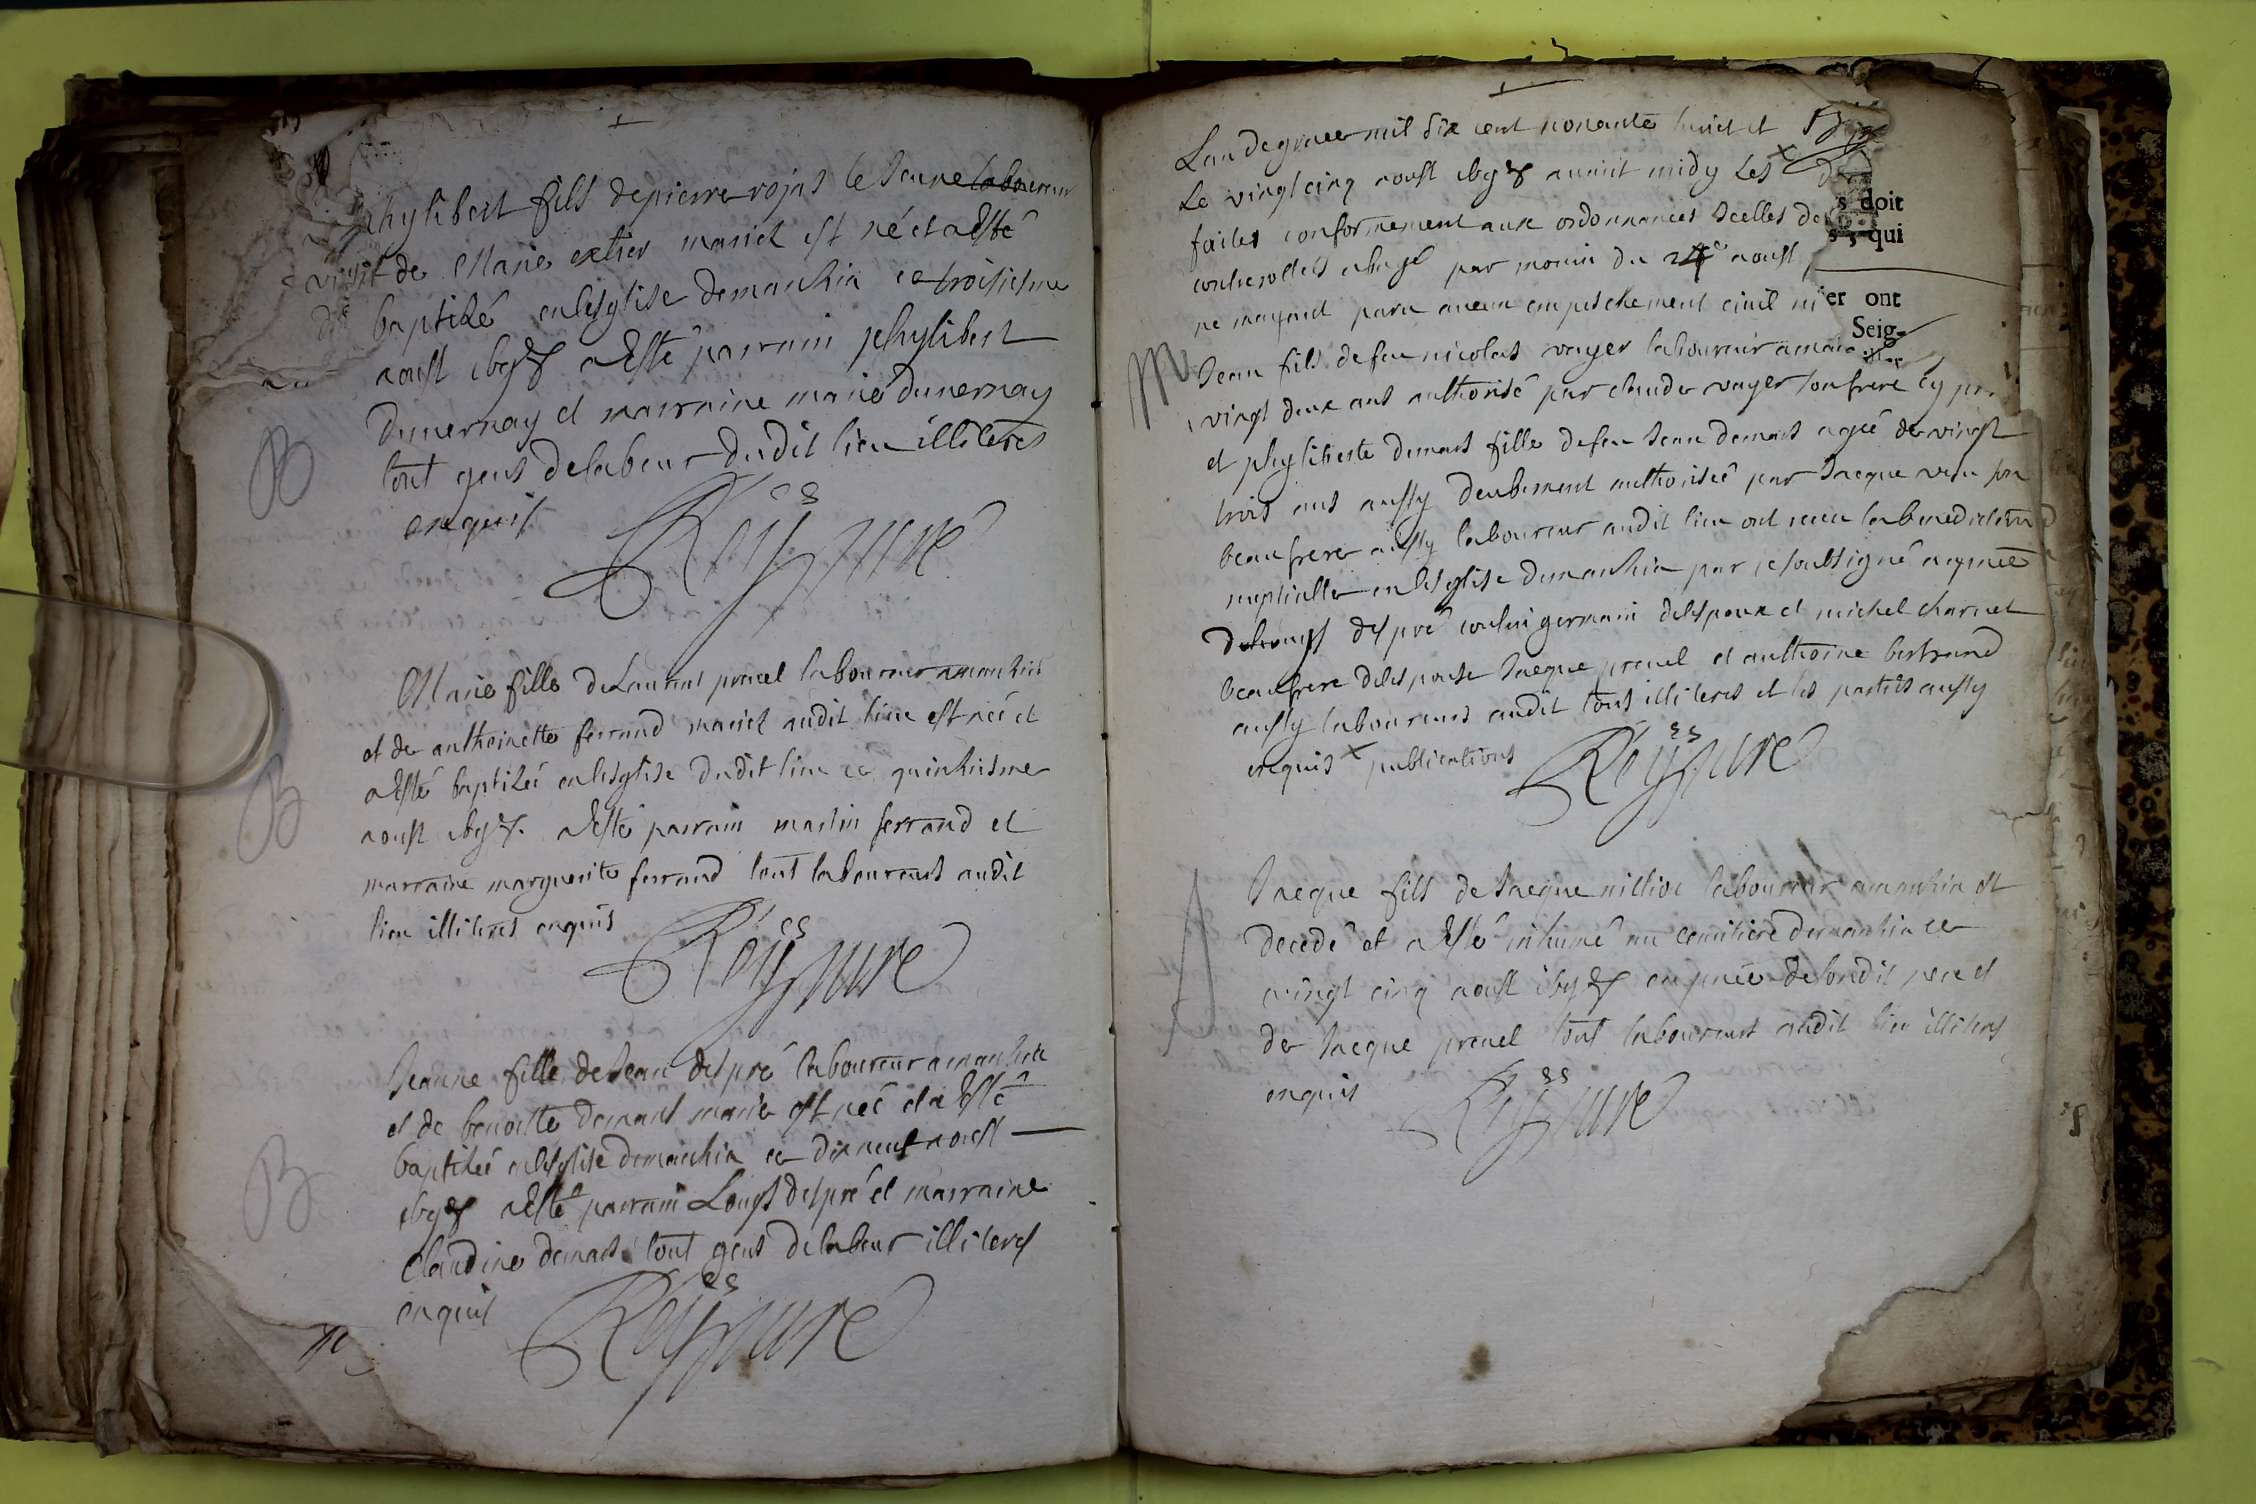 phylibert fils de pierre rojas le Jeune laboureur
et de Marie mariez est né et a Esté
baptizé en lesglise demanhia ce troisiesme
aoust a Esté parrain phylibert
Duuernay et marraine marie duuernay
tout gens de labeur dudit lieu illiteres
enquis
Roÿ cure
B
Marie fille de Laurant preuel laboureur amanhia
et de anthoinette ferrand mariez audit lieu est née et
a Esté baptizée en lesglise dudit lieu ce quinhiesme
aoust a Esté parrain martin ferrand et
marraine marguerite ferrand tout laboureurs audit
lieu illiteres enquis
Roÿ cure
B
Jeanne fille de Jean despré laboureur amanhia
et de benoitte demars marie est née et a Esté
baptizée en lesglise demanhia ce dixneuf aoust
a Esté parrain Louys despré et marraine
Claudine demars tout gens de labeur illiteres
enquis
Roÿ cure
B
Lan de grace mil six cent nonante huict et
Le vingt cinq aoust avant midy Les x
faites conformement aux ordonnances Icelles
controllés par monin du 24e aoust
ne mayant paru aucun empeschement ciuil ni
Jean fils de feu nicolas voyer laboureur
vingt deux ans authorisé par claude voyer son frere cy
et phyliberte demars fille de feu Jean demars agée de vingt
trois ans aussy deubement authorisée par Jacque son
beaufrere aussy laboureur audit lieu ont receu la benediction
nuptialle en lesglise demanhia par je soubsigné
despré cousin germain delespoux et michel charnet
beaufrere delespouse Jacque preuel et anthoine bertrand
aussy laboureurs audit tous illiteres et les parties aussy
enquis x publications
Roÿ cure
s doit
s, qui
er ont
Seig-
M
Jacque fils de Jacque laboureur amanhia est
decedé et a Esté inhumé au cemitiere demanhia ce
vingt cinq aoust en pnce de sondit pere et
de Jacque preuel tout laboureurs audit lieu illiteres
enquis
Roÿ cure